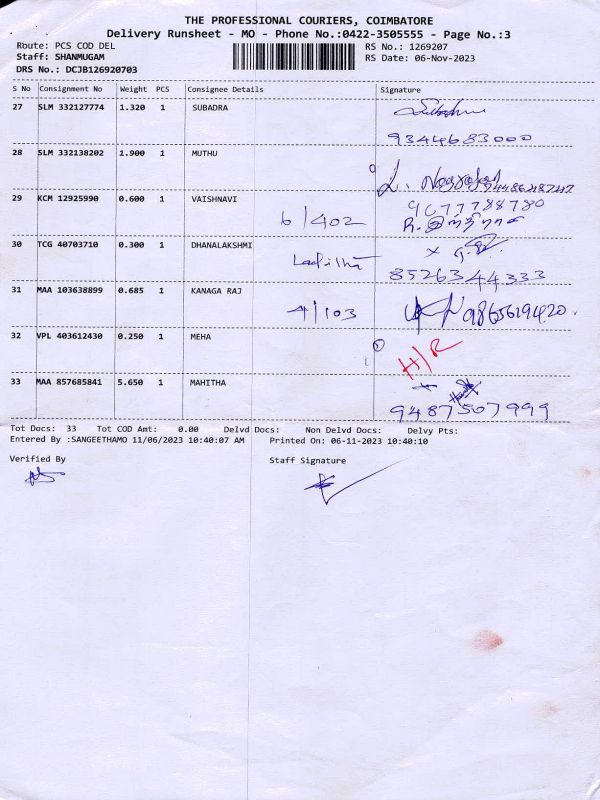 THE PROFESSIONAL COURIERS, COIMBATORE
Delivery Runsheet - MO - Phone No.:0422-3505555 - Page No.:3
Route: PCS COD DEL
RS No.: 1269207
Staff: SHANMUGAM
RS Date: 06-Nov-2023
DRS No.: DCJB126920703
S No Consignment No Weight PCS Consignee Details Signature
27 SLM 332127774 1.320 1 SUBADRA
9344683000
28 SLM 332138202 1.900 1 MUTHU
29 KCM 12925990 0.600 1 VAISHNAVI
9677788780
6/402
30 TCG 40703710 0.300 1 DHANALAKSHMI
8526344333
31 MAA 103638899 0.685 1 KANAGA RAJ
4/103 9865619420.
32 VPL 403612430 0.250 1 MEHA
H/R
33 MAA 857685841 5.650 1 MAHITHA
9487507999
Tot Docs: 33 Tot COD Amt: 0.00 Delvd Docs: Non Delvd Docs: Delvy Pts:
Entered By :SANGEETHAMO 11/06/2023 10:40:07 AM Printed On: 06-11-2023 10:40:10
Verified By Staff Signature